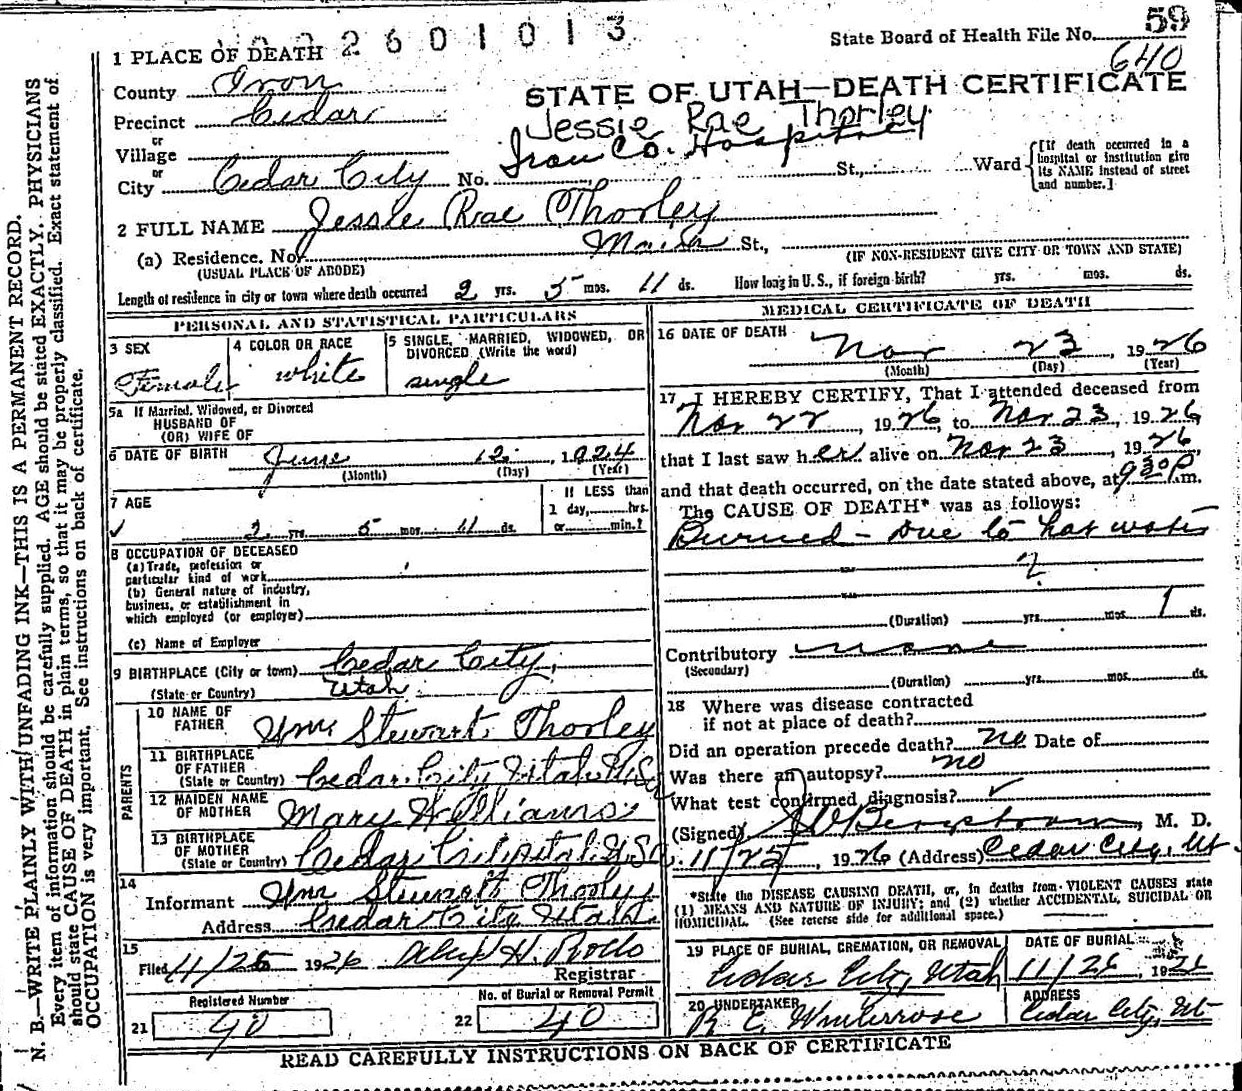 2601013
59
State Board of Health File No.
640
1 PLACE OF DEATH
County Iron
STATE OF UTAH—DEATH CERTIFICATE
Precinct Cedar
Jessie Rae Thorley
or
Village
Iron Co. Hospital
or
City Cedar City No. St., Ward
[If death occurred in a hospital or institution give its NAME instead of street and number.]
2 FULL NAME Jessie Rae Thorley
(a) Residence. No. Main St.,
(USUAL PLACE OF ABODE)
(IF NON-RESIDENT GIVE CITY OR TOWN AND STATE)
Length of residence in city or town where death occurred 2 yrs. 5 mos. 11 ds. How long in U.S., if foreign birth? yrs. mos. ds.
PERSONAL AND STATISTICAL PARTICULARS
3 SEX
Female
4 COLOR OR RACE
white
5 SINGLE, MARRIED, WIDOWED, OR DIVORCED (Write the word)
single
5a If Married, Widowed, or Divorced
HUSBAND OF
(OR) WIFE OF
6 DATE OF BIRTH June 12, 1924
(Month) (Day) (Year)
7 AGE
2 yrs. 5 mos. 11 ds.
If LESS than
1 day, hrs.
or min.?
8 OCCUPATION OF DECEASED
(a) Trade, profession or
particular kind of work
(b) General nature of industry,
business, or establishment in
which employed (or employer)
(c) Name of Employer
9 BIRTHPLACE (City or town) Cedar City,
(State or Country) Utah
PARENTS
10 NAME OF
FATHER Wm Stewart Thorley
11 BIRTHPLACE
OF FATHER
(State or Country) Cedar City Utah U.S.A.
12 MAIDEN NAME
OF MOTHER Mary Williams
13 BIRTHPLACE
OF MOTHER
(State or Country) Cedar City Utah U.S.A.
14
Informant Wm Stewart Thorley
Address Cedar City Utah
15
Filed 11/26 1926
Registrar
Registered Number
21 40
No. of Burial or Removal Permit
22 40
MEDICAL CERTIFICATE OF DEATH
16 DATE OF DEATH
Nov 23, 1926
(Month) (Day) (Year)
17 I HEREBY CERTIFY, That I attended deceased from
Nov 22, 1926, to Nov 23, 1926,
that I last saw her alive on Nov 23, 1926,
and that death occurred, on the date stated above, at 930 P.m.
The CAUSE OF DEATH* was as follows:
Burned - Due to hot water
?
(Duration) yrs. mos. 1 ds.
Contributory none
(Secondary)
(Duration) yrs. mos. ds.
18 Where was disease contracted
if not at place of death?
Did an operation precede death? no Date of
Was there an autopsy? no
What test confirmed diagnosis? ✓
(Signed) Bergstrom, M. D.
11/25, 1926 (Address) Cedar City, Ut.
*State the DISEASE CAUSING DEATH, or, in deaths from VIOLENT CAUSES state
(1) MEANS AND NATURE OF INJURY; and (2) whether ACCIDENTAL, SUICIDAL OR
HOMICIDAL. (See reverse side for additional space.)
19 PLACE OF BURIAL, CREMATION, OR REMOVAL
Cedar City, Utah
DATE OF BURIAL
11/26, 1926
20 UNDERTAKER
R E Winterrose
ADDRESS
Cedar City, Ut
READ CAREFULLY INSTRUCTIONS ON BACK OF CERTIFICATE
N. B.—WRITE PLAINLY WITH UNFADING INK—THIS IS A PERMANENT RECORD.
Every item of information should be carefully supplied. AGE should be stated EXACTLY. PHYSICIANS
should state CAUSE OF DEATH in plain terms, so that it may be properly classified. Exact statement of
OCCUPATION is very important. See instructions on back of certificate.